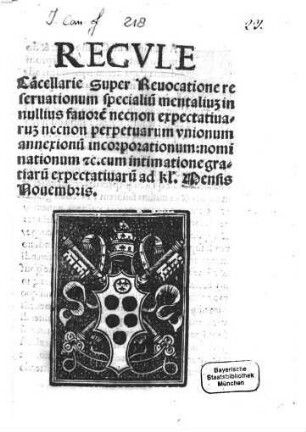 J. can f 218
REGVLE
Cãcellarie Super Reuocatione re
seruationum specialiũ mentaliuʒ in
nullius fauorẽ necnon expectatiua-
ruʒ necnon perpetuarum vnionum
annexionũ incorporationum: nomi
nationum ⁊c. cum intimatione gra-
tiarũ expectatiuarũ ad kl'. Mensis
Nouembris.
Bayerische
Staatsbibliothek
München